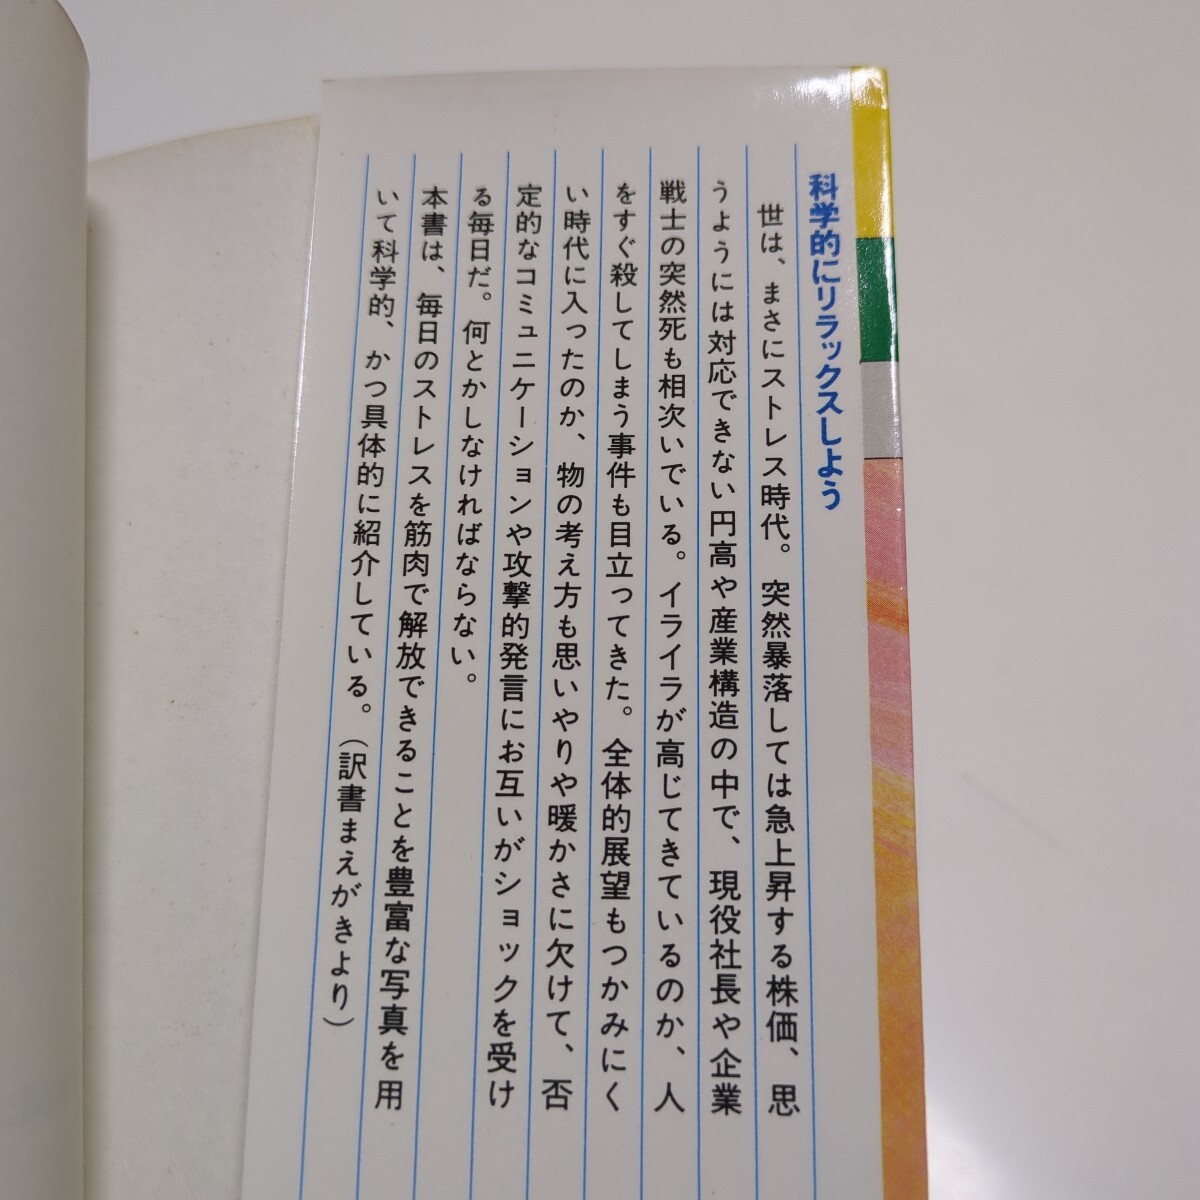 科学的にリラックスしよう
世は、まさにストレス時代。突然暴落しては急上昇する株価、思
うようには対応できない円高や産業構造の中で、現役社長や企業
戦士の突然死も相次いでいる。イライラが高じてきているのか、人
をすぐ殺してしまう事件も目立ってきた。全体的展望もつかみにく
い時代に入ったのか、物の考え方も思いやりや暖かさに欠けて、否
定的なコミュニケーションや攻撃的発言にお互いがショックを受け
る毎日だ。何とかしなければならない。
本書は、毎日のストレスを筋肉で解放できることを豊富な写真を用
いて科学的、かつ具体的に紹介している。（訳書まえがきより）